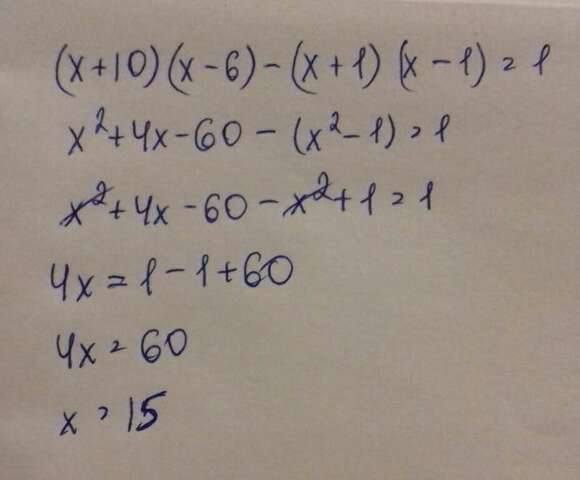 (x+10)(x-6)-(x+1)(x-1)=1
x²+4x-60-(x²-1)=1
x²+4x-60-x²+1=1
4x=1-1+60
4x=60
x=15